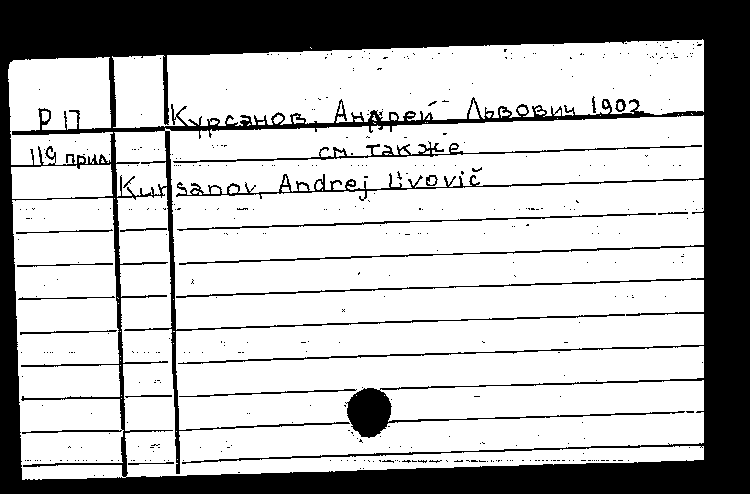 Р 17 Курсанов, Андрей Львович 1902
119 прил. см. также
Kursanov, Andrej L'vovič